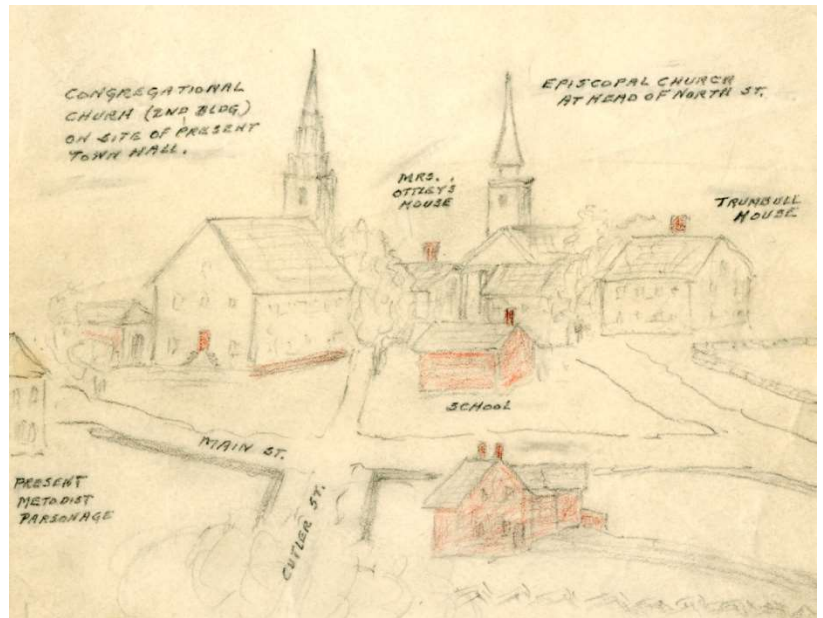 CONGREGATIONAL
CHURH (2ND BLDG)
ON SITE OF PRESENT
TOWN HALL.
EPISCOPAL CHURCH
AT HEAD OF NORTH ST.
MRS.
OTTLEYS
HOUSE
TRUMBULL
HOUSE
SCHOOL
MAIN ST.
CUTLER ST.
PRESENT
METODIST
PARSONAGE